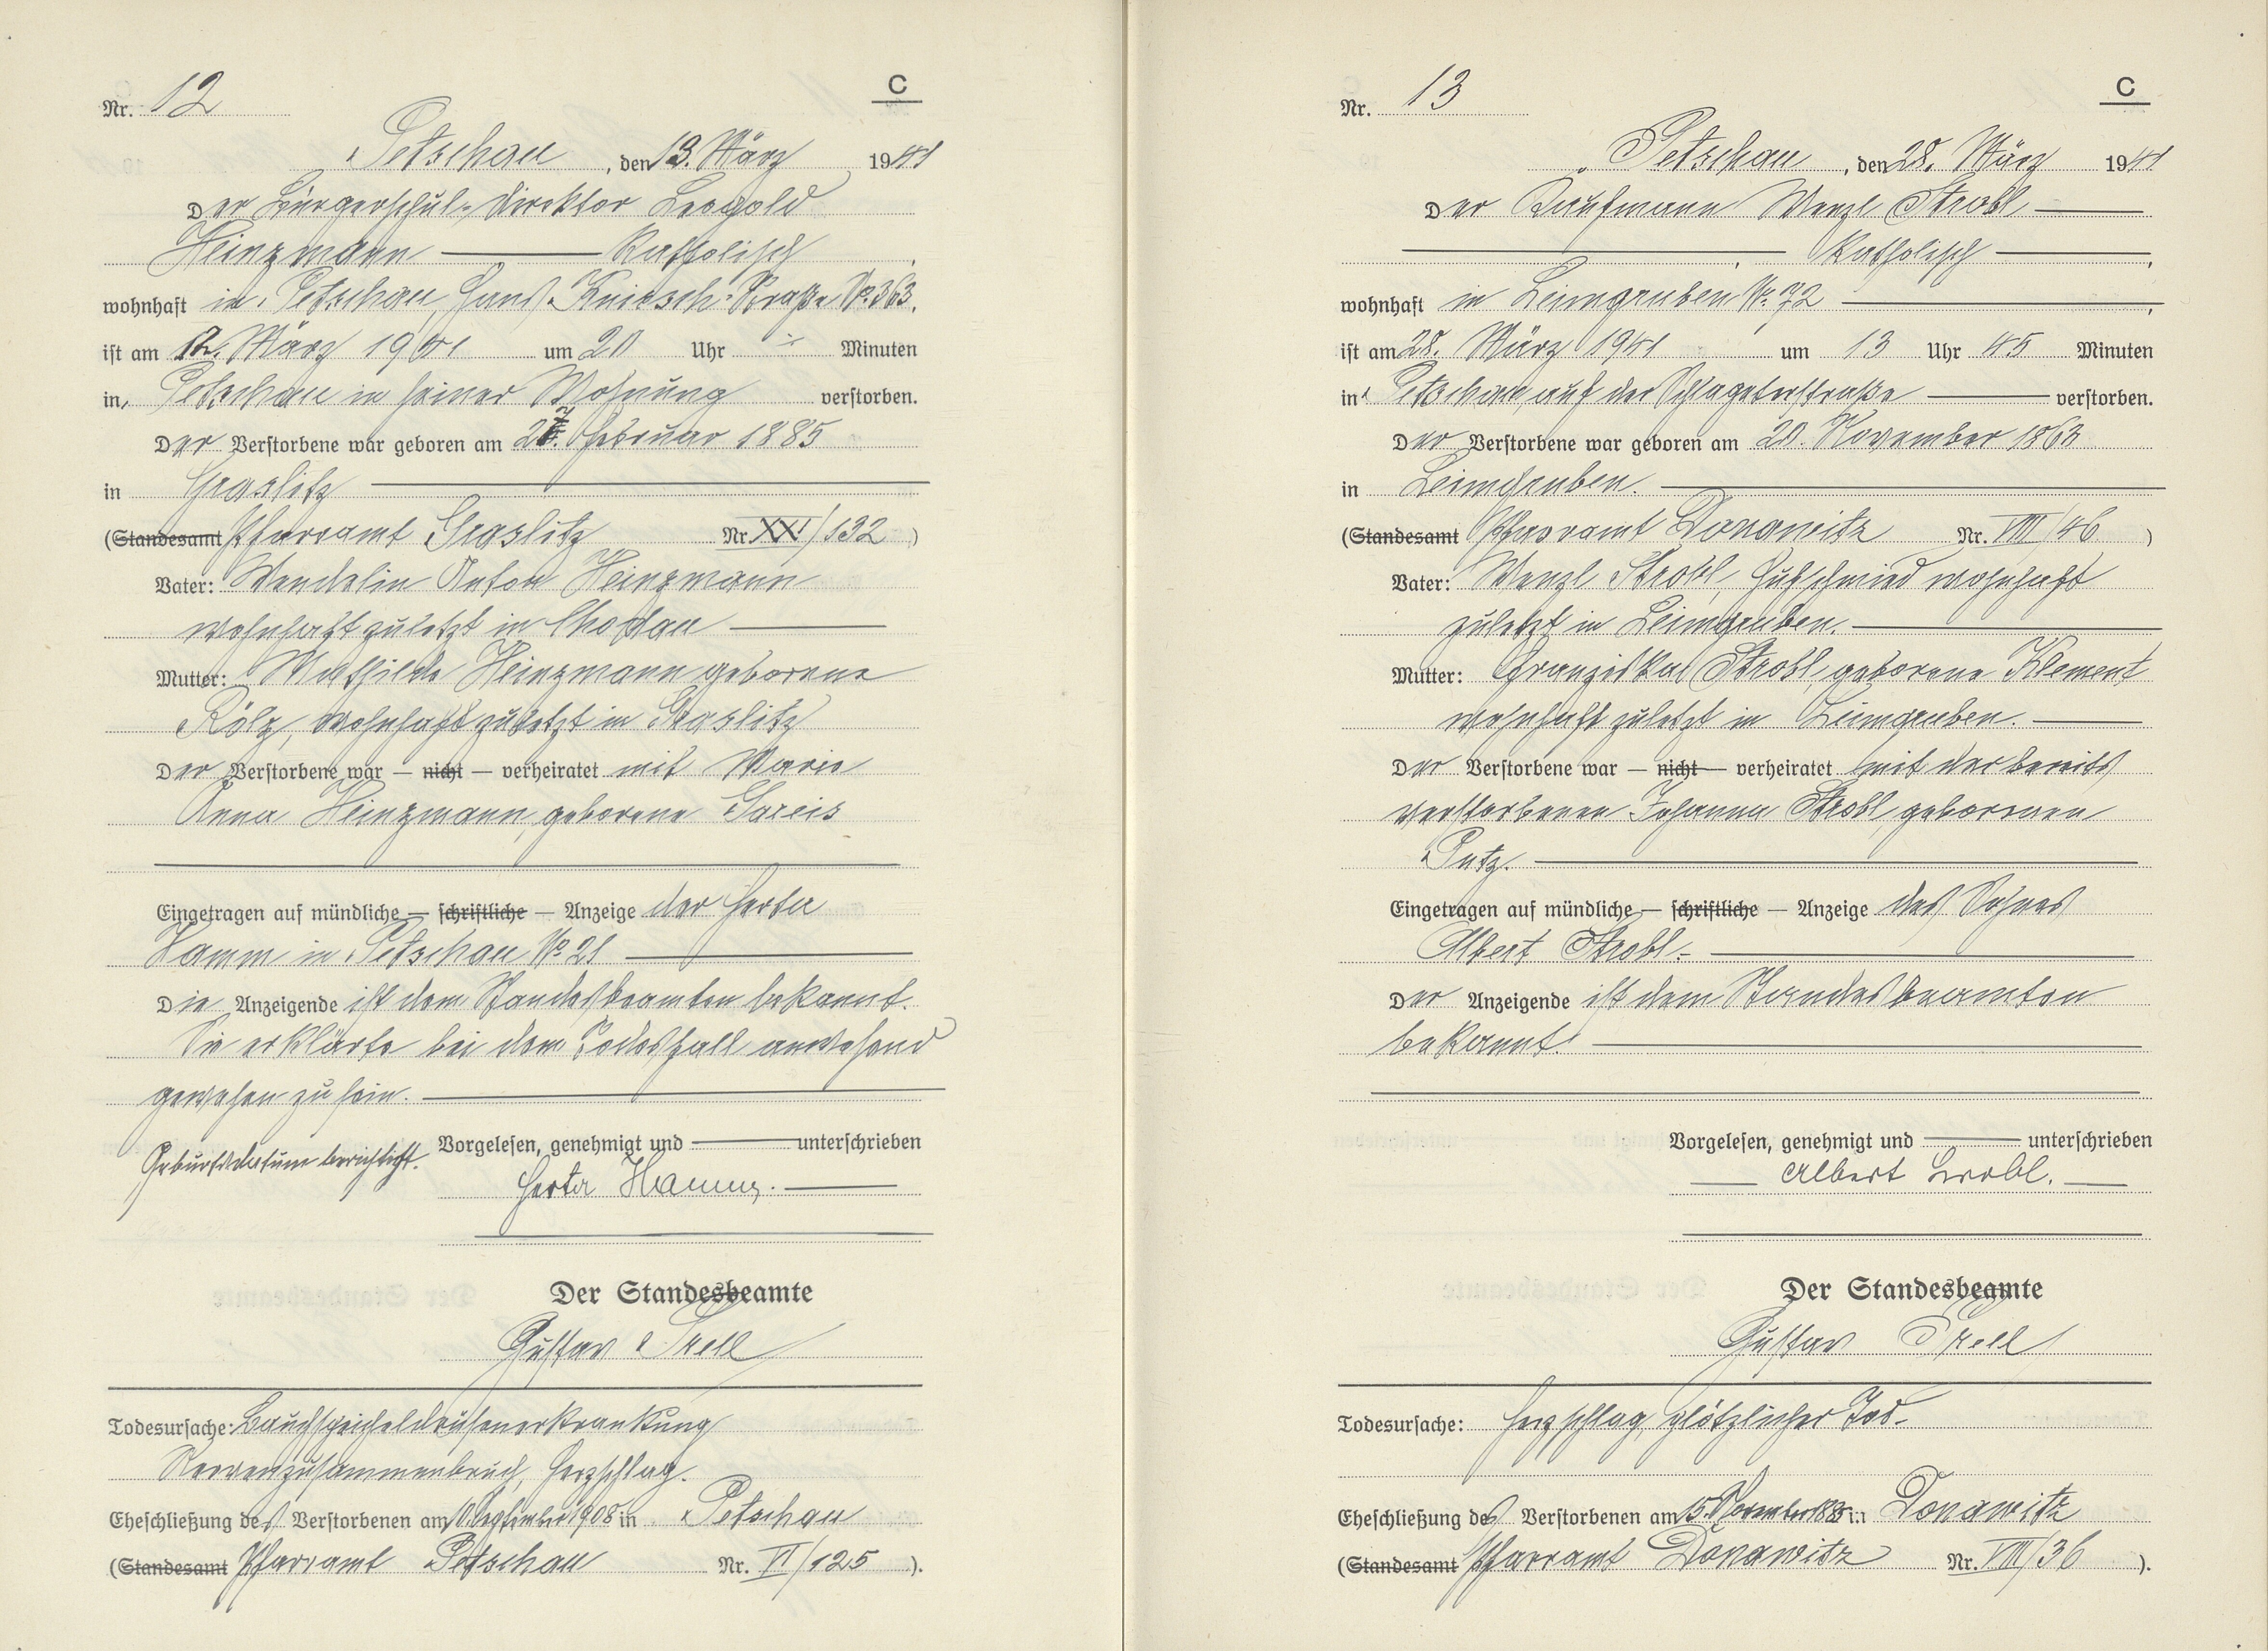 C
Nr. 12
Petschau, den 13. März 1941
Der Bürgerschul-Direktor Leopold
Heinzmann Katholisch,
wohnhaft in Petschau, Hans-Knirsch-Straße No. 363,
ist am 12. März 1941 um 20 Uhr Minuten
in Petschau in seiner Wohnung verstorben.
Der Verstorbene war geboren am 27. Februar 1885
in Graslitz
(Standesamt Pfarramt Graslitz Nr. XXI/132)
Vater: Wendelin Anton Heinzmann
wohnhaft zuletzt in Chodau
Mutter: Mathilde Heinzmann geborene
Kölz, wohnhaft zuletzt in Graslitz
Der Verstorbene war — nicht — verheiratet mit Marie
Anna Heinzmann, geborene Gareis
Eingetragen auf mündliche — schriftliche — Anzeige der Herta
Hamm in Petschau No. 21
Die Anzeigende ist dem Standesbeamten bekannt.
Sie erklärte bei dem Todesfall anwesend
gewesen zu sein.
Geburtsdatum berichtigt.
Vorgelesen, genehmigt und unterschrieben
Herta Hamm.
Der Standesbeamte
Gustav Trell
Todesursache: Bauchspeicheldrüsenerkrankung
Nervenzusammenbruch, Herzschlag.
Eheschließung des Verstorbenen am 10. September 1908 in Petschau
(Standesamt Pfarramt Petschau Nr. VI/125).
C
Nr. 13
Petschau, den 28. März 1941
Der Kaufmann Wenzl Strobl
Katholisch,
wohnhaft in Leimgruben No. 72,
ist am 28. März 1941 um 13 Uhr 45 Minuten
in Petschau, auf der Schlageterstraße verstorben.
Der Verstorbene war geboren am 20. November 1863
in Leimgruben.
(Standesamt Pfarramt Donawitz Nr. VIII/46)
Vater: Wenzl Strobl, Hufschmied wohnhaft
zuletzt in Leimgruben.
Mutter: Franziska Strobl, geborene Klement
wohnhaft zuletzt in Leimgruben.
Der Verstorbene war — nicht — verheiratet mit der bereits
verstorbenen Johanna Strobl, geborenen
Putz.
Eingetragen auf mündliche — schriftliche — Anzeige des Sohnes
Albert Strobl.
Der Anzeigende ist dem Standesbeamten
bekannt.
Vorgelesen, genehmigt und unterschrieben
Albert Strobl.
Der Standesbeamte
Gustav Trell
Todesursache: Herzschlag, plötzlicher Tod.
Eheschließung des Verstorbenen am 15. November in Donawitz
(Standesamt Pfarramt Donawitz Nr. VIII/36).